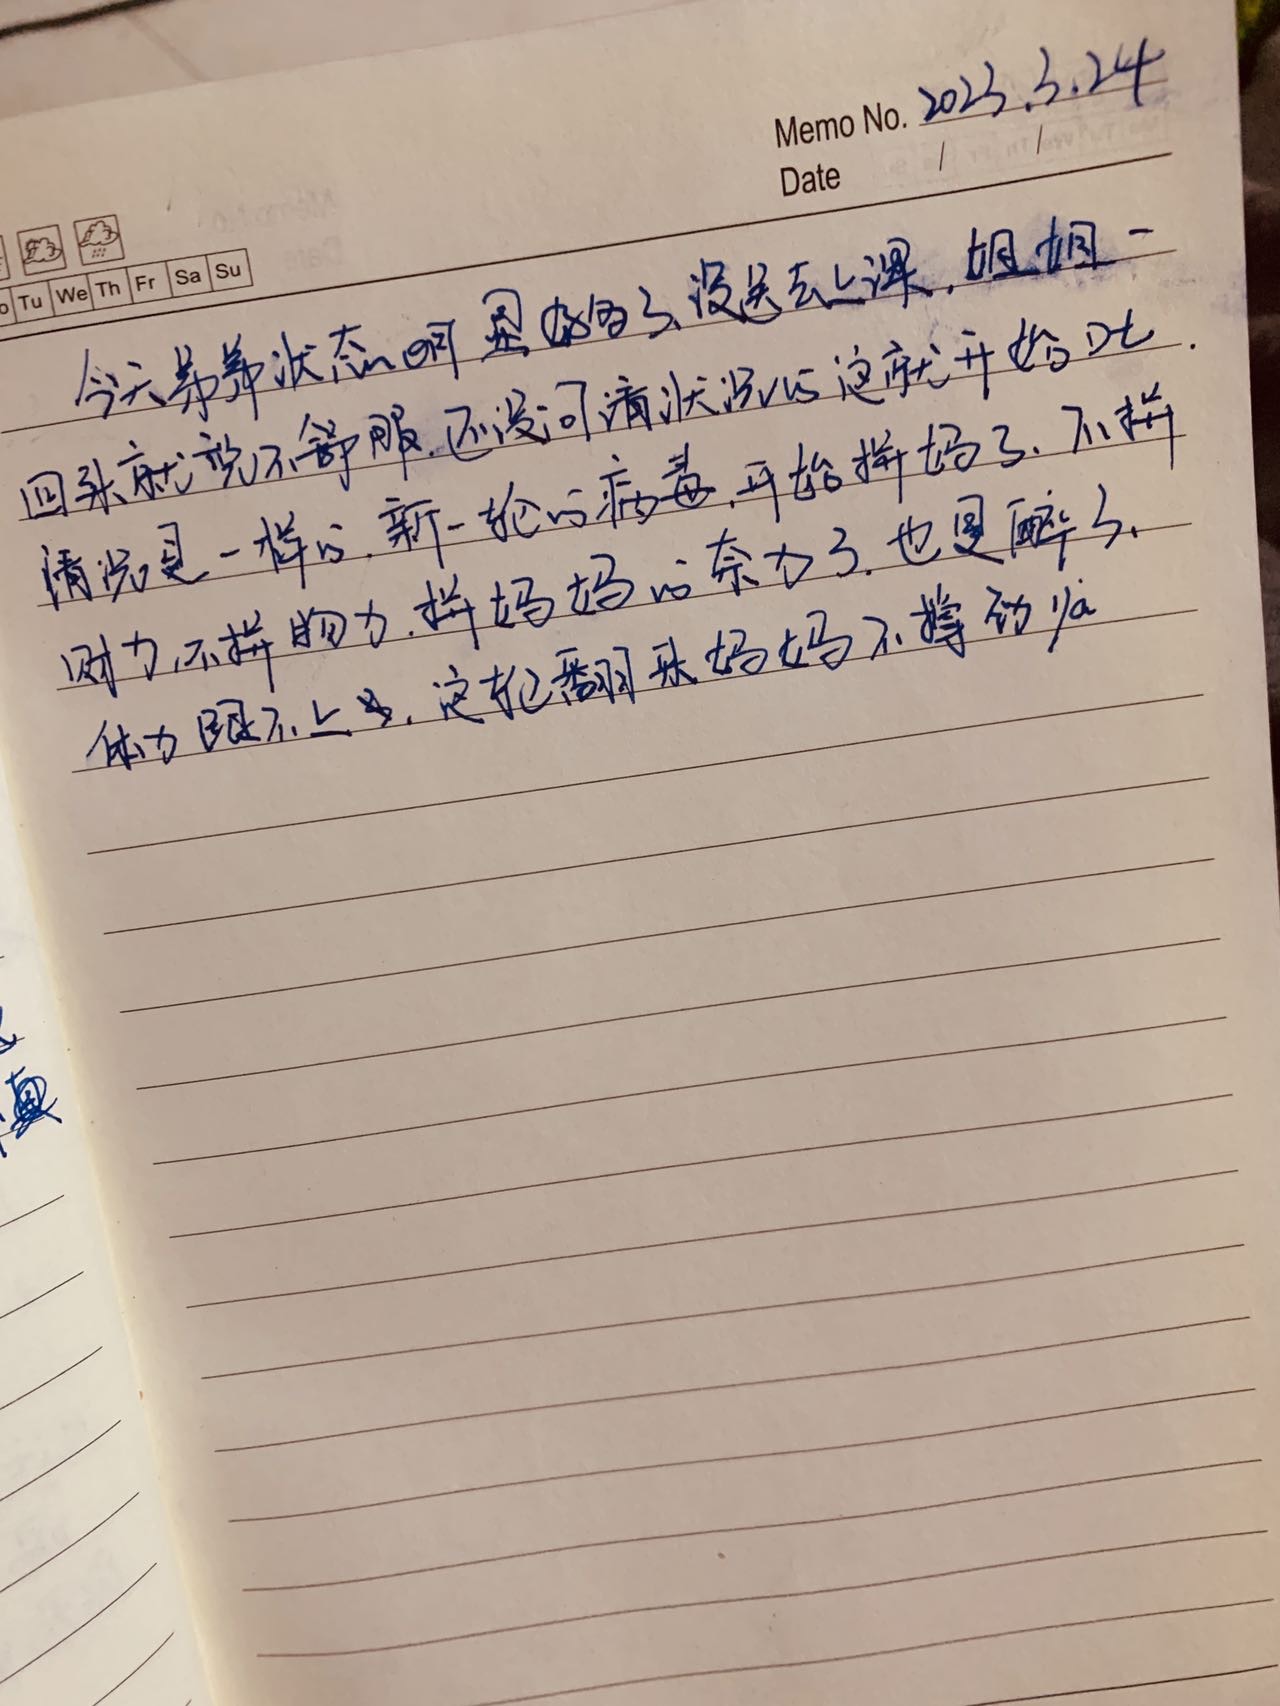 Memo No. 2023.3.24
Date / /
Tu We Th Fr Sa Su
今天弟弟状态明显好多了,没送去上课,姐姐一
回来就说不舒服,还没问清状况的这就开始吐.
情况是一样的,新一轮的病毒,开始拼妈了、不拼
财力,不拼物力,拼妈妈的奈力了.也是醉了、
体力跟不上,这轮翻来妈妈不撑